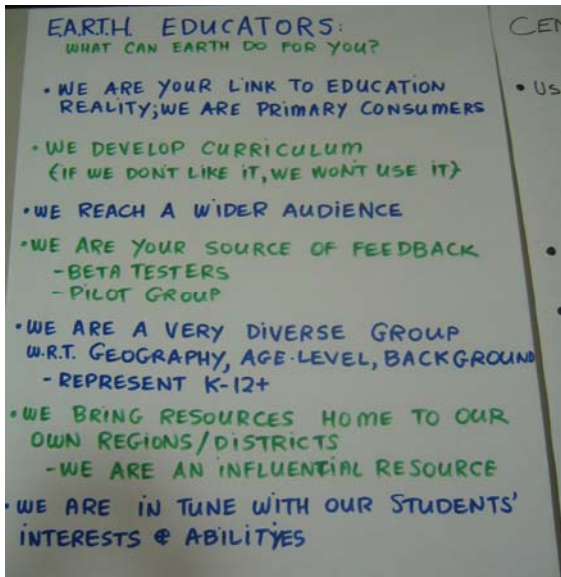 E.A.R.T.H. EDUCATORS:
WHAT CAN EARTH DO FOR YOU?
• WE ARE YOUR LINK TO EDUCATION
REALITY; WE ARE PRIMARY CONSUMERS
• WE DEVELOP CURRICULUM
{IF WE DON'T LIKE IT, WE WON'T USE IT}
• WE REACH A WIDER AUDIENCE
• WE ARE YOUR SOURCE OF FEEDBACK
- BETA TESTERS
- PILOT GROUP
• WE ARE A VERY DIVERSE GROUP
W.R.T. GEOGRAPHY, AGE-LEVEL, BACKGROUND
- REPRESENT K-12+
• WE BRING RESOURCES HOME TO OUR
OWN REGIONS/DISTRICTS
- WE ARE AN INFLUENTIAL RESOURCE
• WE ARE IN TUNE WITH OUR STUDENTS'
INTERESTS & ABILITIES
CEN
• US